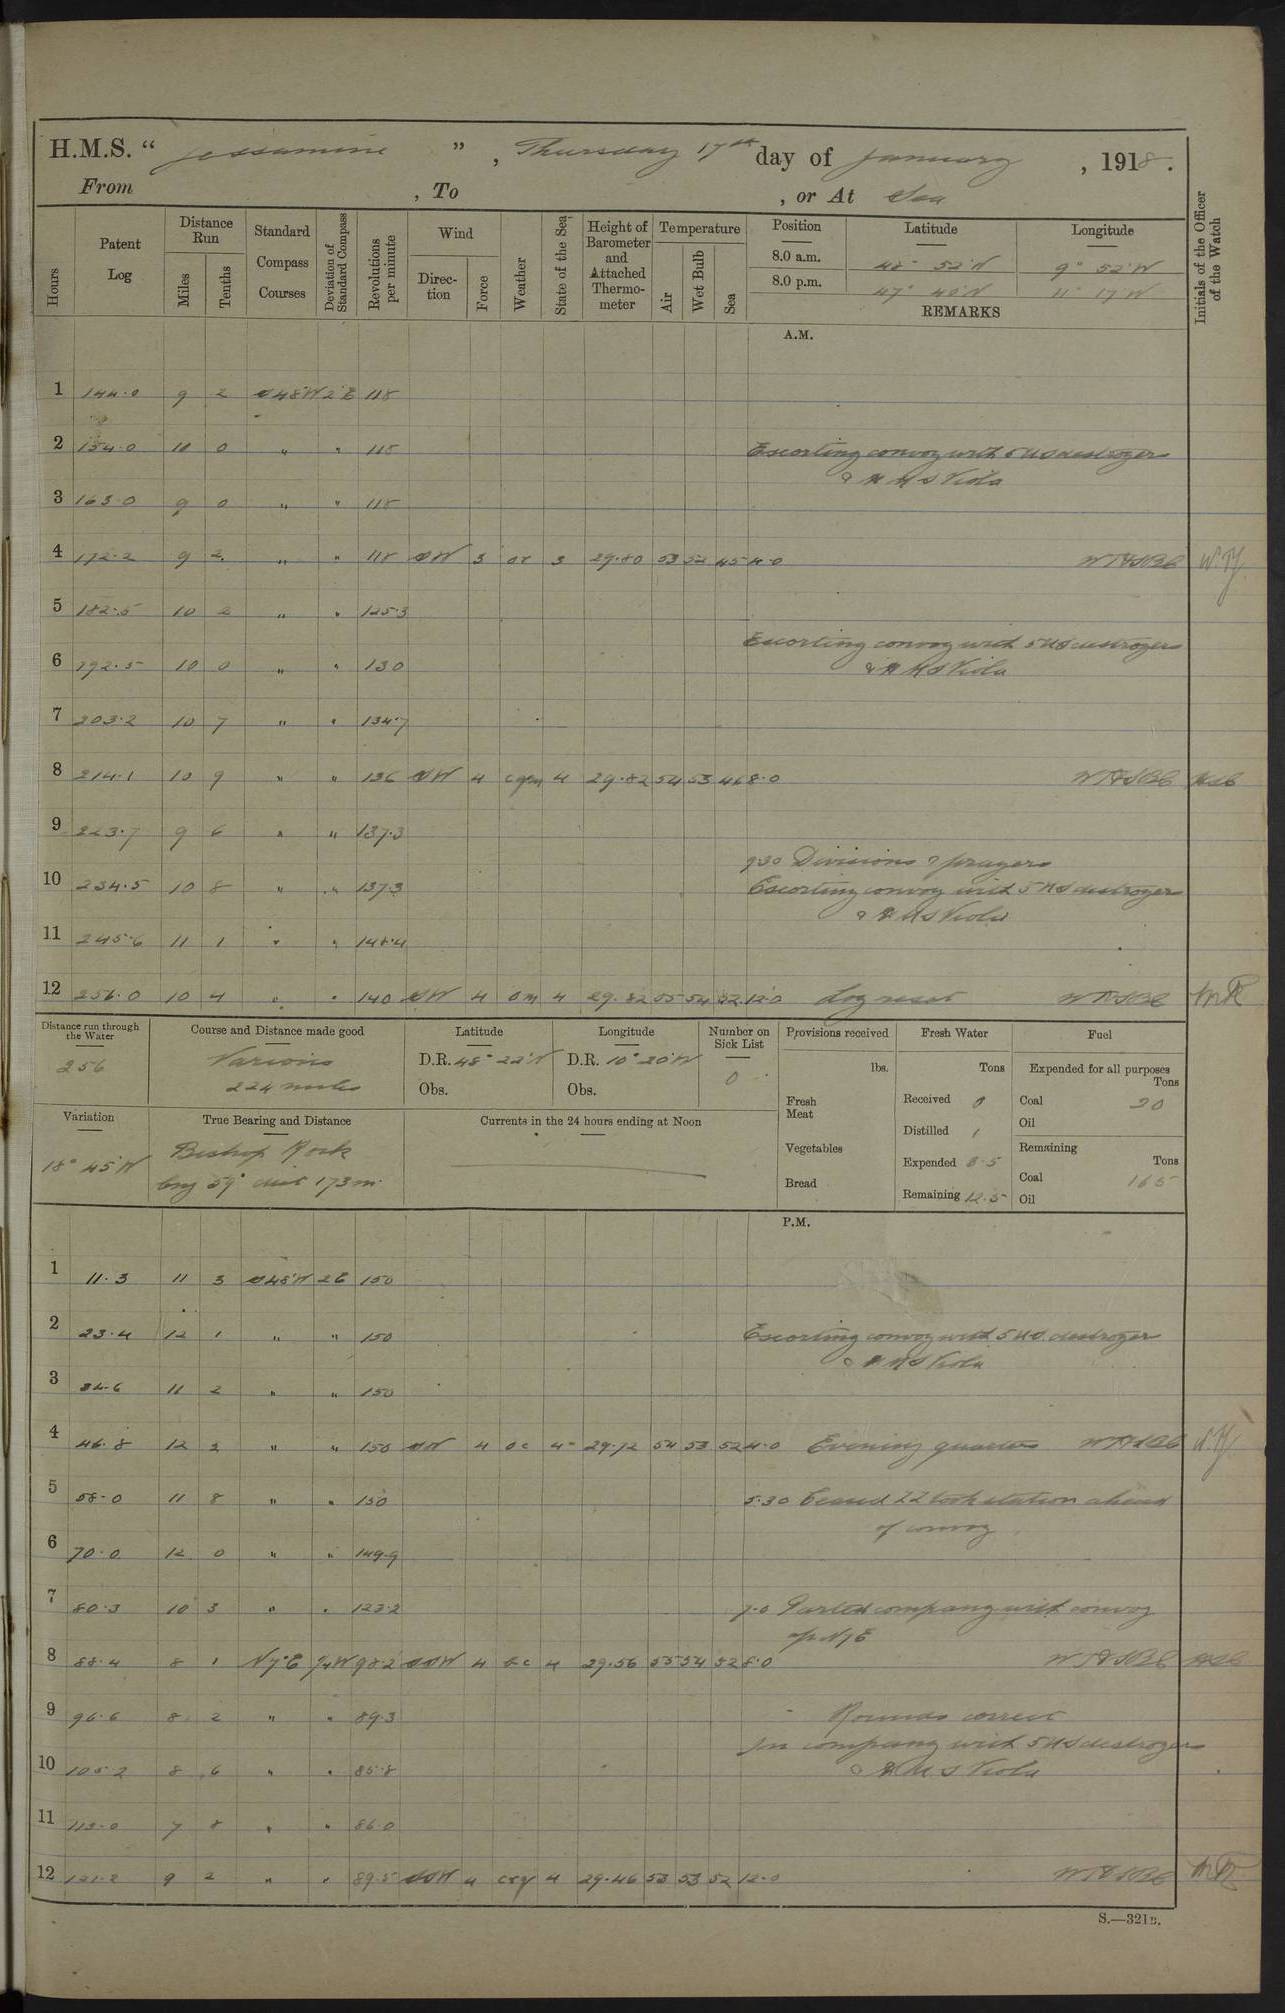 H.M.S. “ Jessamine ” , Thursday 17th day of January , 1918 .
From , To , or At Sea
Hours
Patent Log
Distance Run
Miles
Tenths
Standard Compass Courses
Deviation of Standard Compass
Revolutions per minute
Wind
Direction
Force
Weather
State of the Sea
Height of Barometer and Attached Thermometer
Temperature
Air
Wet Bulb
Sea
Position Latitude Longitude
8.0 a.m. 48° 52'N 9° 52'W
8.0 p.m. 47° 40'N 11° 17'W
REMARKS
Initials of the Officer of the Watch
A.M.
1 144.0 9 2 S48W 2°E 118
2 154.0 10 0 " " 118 Escorting convoy with 5 US destroyers
& HMS Viola
3 163.0 9 0 " " 118
4 172.2 9 2 " " 118 SW 3 or 3 29.80 53 52 45 4.0
5 182.5 10 2 " " 125.3
Escorting convoy with 5 US destroyers
6 192.5 10 0 " " 130 & HMS Viola
7 203.2 10 7 " " 134.7
8 214.1 10 9 " " 136 SW 4 cqm 4 29.82 54 53 46 8.0
9 223.7 9 6 " " 137.3
930 Divisions & prayers
10 234.5 10 8 " " 137.3 Escorting convoy with 5 US destroyers
& HMS Viola
11 245.6 11 1 " " 148.4
12 256.0 10 4 " " 140 SW 4 om 4 29.82 55 54 52 12.0 Log reset
Distance run through the Water 256
Course and Distance made good Various 224 miles
Latitude D.R. 48° 22'N Obs.
Longitude D.R. 10° 20'W Obs.
Number on Sick List 0
Provisions received lbs.
Fresh Meat
Vegetables
Bread
Fresh Water Tons
Received 0
Distilled 1
Expended 8.5
Remaining 12.5
Fuel
Expended for all purposes Tons
Coal 20
Oil
Remaining Tons
Coal 165
Oil
Variation 18° 45'W
True Bearing and Distance Bishop Rock brg 59° dist 173m.
Currents in the 24 hours ending at Noon
P.M.
1 11.3 11 3 S48W 2E 150
2 23.4 12 1 " " 150 Escorting convoy with 5 US destroyers
& HMS Viola
3 34.6 11 2 " " 150
4 46.8 12 2 " " 150 SW 4 oc 4 29.72 54 53 52 4.0 Evening quarters
5 58.0 11 8 " " 150 5.30 Ceased ZZ took station ahead
of convoy
6 70.0 12 0 " " 149.9
7 80.3 10 3 " " 123.2 7.0 Parted company with convoy
8 88.4 8 1 N7°E 98.2 SSW 4 bc 4 29.56 55 54 52 8.0
9 96.6 8 2 " " 89.3 Rounds correct
In company with 5 US destroyers
10 105.2 8 6 " " 85.8 & HMS Viola
11 113.0 7 8 " " 86.0
12 121.2 9 2 " " 89.5 SSW 4 4 29.46 53 53 52 12.0
S.—321B.